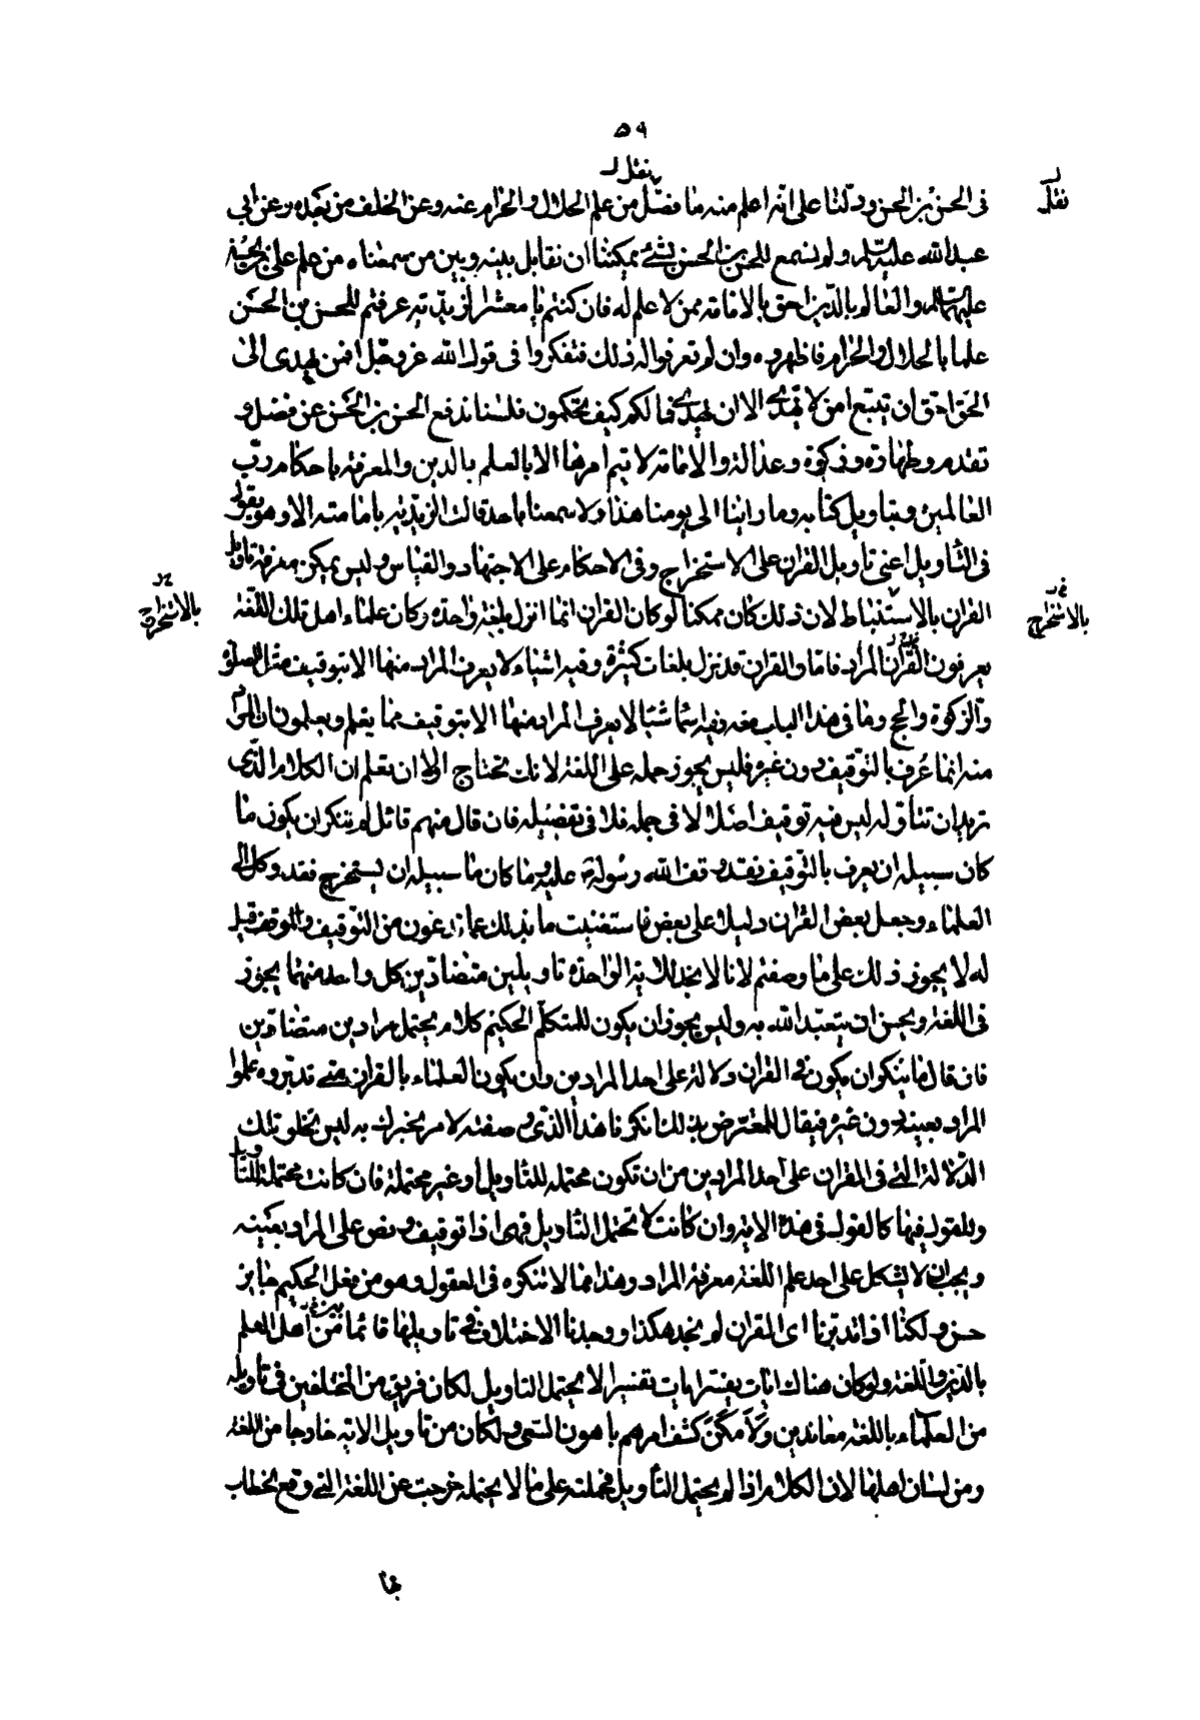 ٥٩
نقل لـ
نقل
فى الحسن بن الحسن ودلّنا على انّه اعلم منه ما فضّل من علم الحلال والحرام عنه وعن الخلف من بعده وعن ابى
عبد الله عليه السلام ولم نسمع للحسن بن الحسن بشئ يمكننا ان نقابل بينه وبين من سمعناه من علم على بن الحسين
عليهما السلام والعالم بالدّين احق بالامامة ممن لا علم له فان كنتم يا معشر الزيديّة عرفتم للحسن بن الحسن
علما بالحلال والحرام فاظهروه وان لم تعرفوا له ذلك فتفكروا فى قول الله عز وجل افمن يهدى الى
الحق احق ان يتبع امن لا يهدى الا ان يهدى فما لكم كيف تحكمون فلسنا ندفع الحسن بن الحسن عن فضل و
تقدم وطهارة وزكوة وعدالة والامامة لا يتم امرها الا بالعلم بالدين والمعرفة باحكام ربّ
العالمين وبتاويل كتابه وما راينا الى يومنا هذا ولا سمعنا باحد قالت الزيديّة بامامته الا وهو يقول
فى التاويل اعنى تاويل القران على الاستخراج وفى الاحكام على الاجتهاد والقياس وليس يمكن معرفة تاويل
بالاستخراج
القران بالاستنباط لان ذلك كان ممكنا لو كان القران انما انزل بلغة واحدة وكان علماء اهل تلك اللّغة
بالاستخراج
يعرفون المراد فاما والقران قد نزل بلغات كثيرة وفيه اشياء لا يعرف المراد منها الا بتوقيف مثل الصلوة
والزكوة والحج وما فى هذا الباب معه وفيه اشياء لا يعرف المراد منها الا بتوقيف مما يعلم ويعلمون ان المراد
منه انما عُرف بالتوقيف دون غيره فليس يجوز حمله على اللغة لانك تحتاج اولا ان تعلم ان الكلام الذى
تريد ان تتأوله ليس فيه توقيف اصلا لا فى جمله فلا فى تفصيله فان قال منهم قائل لم ينكر ان يكون ما
كان سبيله ان يعرف بالتوقيف فقد وقف الله رسوله عليه وما كان ما سبيله ان يستخرج فقد وكل الى
العلماء وجعل بعض القران دليلا على بعض فاستغنيت ما بذلك عما تدعون من التوقيف والموقف قيل
له لا يجوز ذلك على ما وصفتم لانا لا نجد للاية الواحدة تاويلين متضادين كل واحد منهما يجوز
فى اللغة ويحسن ان يتعبّد الله به وليس يجوز ان يكون للمتكلم الحكيم كلام يحتمل مرادين متضادين
فان قال ما ينكر ان يكون فى القران دلالة على احد المرادين وان يكون العلماء بالقران متى تدبّروه علموا
المراد بعينه دون غيره فيقال للمعترض بذلك انكرنا هذا الذى وصفته لامر نخبرك به ليس تخلو تلك
الدّلالة التى فى القران على احد المرادين من ان تكون محتملة للتاويل او غير محتملة فان كانت محتملة للتاويل
فالقول فيها كالقول فى هذه الاية وان كانت لا تحتمل التاويل فهى اذا توقيف ونص على المراد بعينه
ويجب ان لا يشكل على احد علم اللغة معرفة المراد وهذا مما لا ننكره فى العقول وهو من فعل الحكيم جايز
حسن ولكنا اذا تدبّرنا اى القران لم نجد هكذا ووجدنا الاختلاف فى تاويلها قائما بين اهل العلم
بالدّين واللّغة ولو كان هناك ايات يفسر ايات تفسيرا لا يحتمل التاويل لكان فريق من المختلفين فى تاويله
من العلماء باللغة معاندين ولامكن كشف امرهم باهون السّعى ولكان من تاويل الاية خارجا من اللغة
ومن لسان اهلها لان الكلام اذا لم يحتمل التأويل فحملته على ما لا يحتمله خرجت عن اللغة التى وقع الخطاب
بها